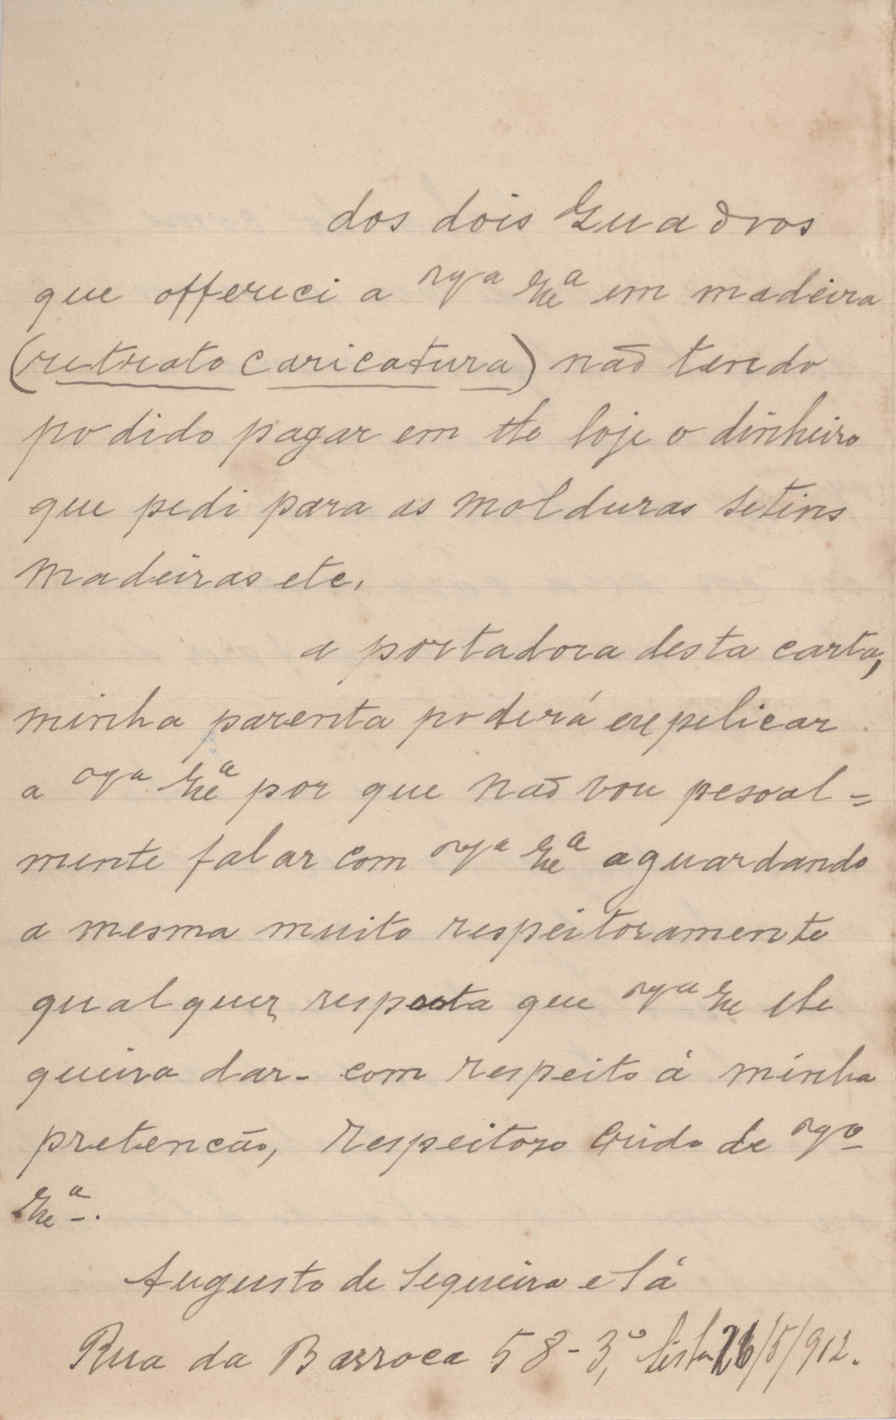 dos dois Quadros
que offereci a Vª Exª em madeira
(retrato caricatura) não tendo
podido pagar em the loje o dinheiro
que pedi para as molduras setins
madeiras etc.
a portadora desta carta,
minha parenta poderá expelicar
a Vª Exª por que não vou pesoal=
mente falar com Vª Exª aguardando
a mesma muito respeitosamente
qualquer resposta que Vª Ex lhe
queira dar- com respeito á minha
pretencão, Respeitoso Criado de Vª
Exª.
Augusto de Sequeira e Sá
Rua da Barroca 58-3,º Lisbª 26/5/912.